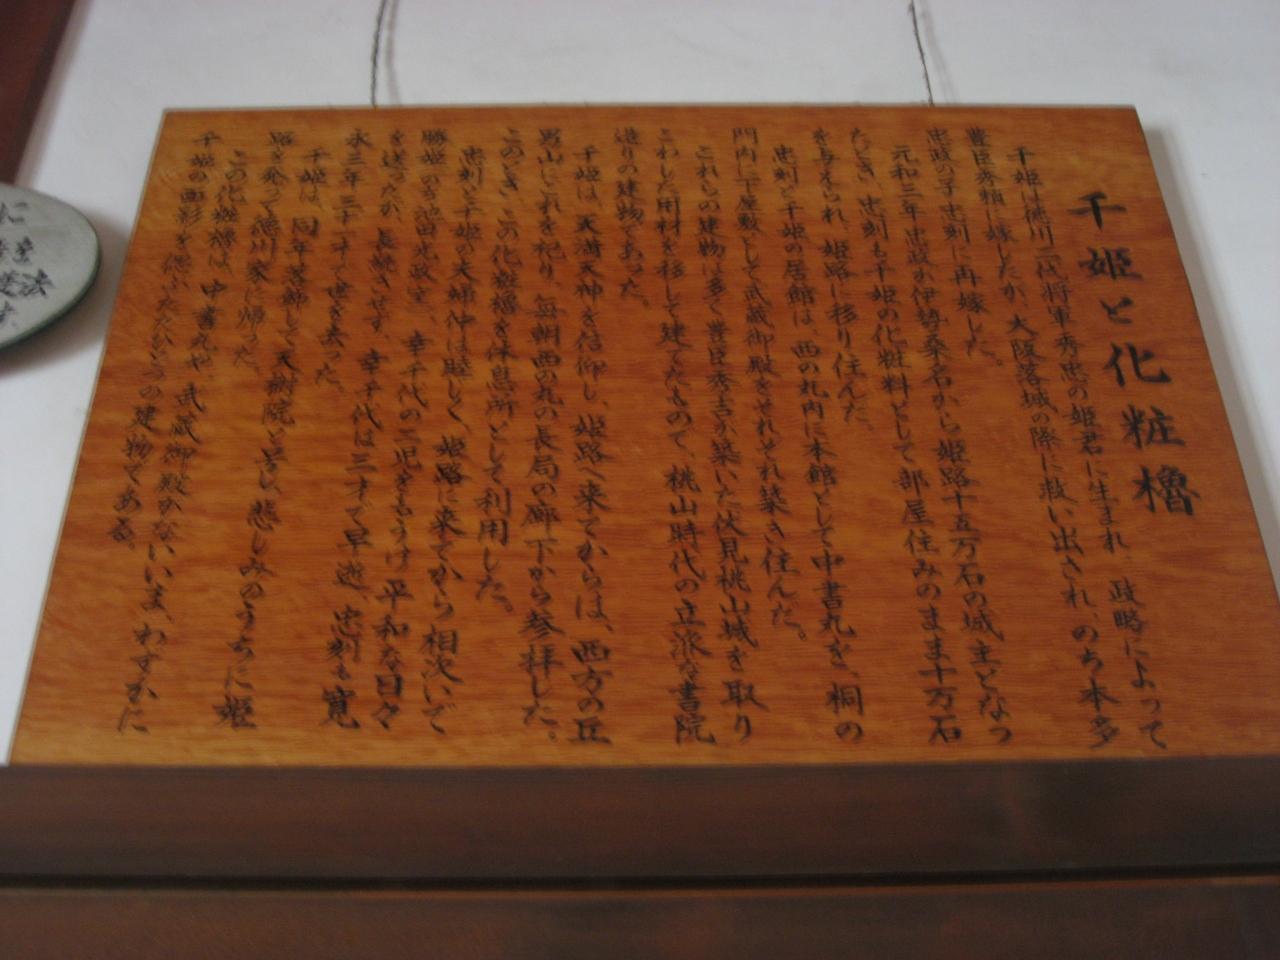 千姫と化粧櫓
千姫は徳川二代将軍秀忠の姫君に生まれ、政略によって
豊臣秀頼に嫁したが、大阪落城の際に救い出され、のち本多
忠政の子忠刻に再嫁した。
元和三年忠政が伊勢桑名から姫路十五万石の城主となっ
たとき、忠刻も千姫の化粧料として部屋住みのまま十万石
を与えられ、姫路に移り住んだ。
忠刻と千姫の居館は、西の丸内に本館として中書丸を、桐の
門内に下屋敷として武蔵御殿をそれぞれ築き住んだ。
これらの建物は多く豊臣秀吉が築いた伏見桃山城を取り
こわした用材を移して建てたもので、桃山時代の立派な書院
造りの建物であった。
千姫は、天満天神を信仰し、姫路へ来てからは、西方の丘
男山にこれを祀り、毎朝西の丸の長局の廊下から参拝した。
このとき、この化粧櫓を休息所として利用した。
忠刻と千姫の夫婦仲は睦じく、姫路に来てから相次いで
勝姫のち池田光政室、幸千代の二児をもうけ平和な日々
を送ったが、長続きせず、幸千代は三才で早逝、忠刻も寛
永三年三十一才で世を去った。
千姫は、同年落飾して天樹院と号し、悲しみのうちに姫
路を発って徳川家に帰った。
この化粧櫓は、中書丸や武蔵御殿がないいま、わずかに
千姫の面影を偲ぶただ一つの建物である。
に
法